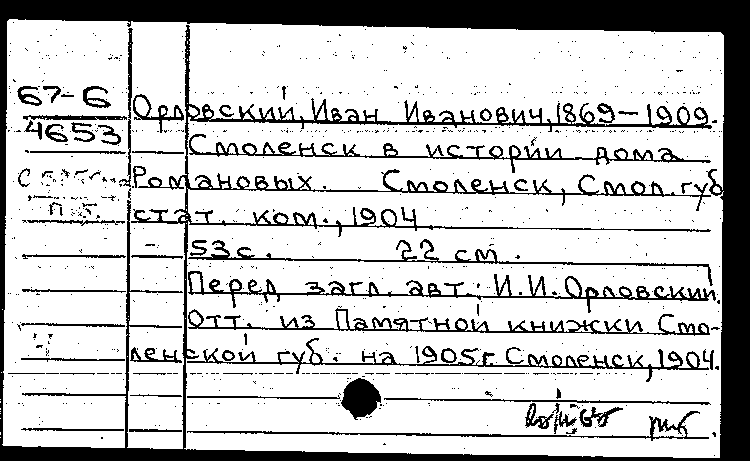 67-6
4653
Орловский, Иван Иванович, 1869-1909.
Смоленск в истории дома
Романовых. Смоленск, Смол. губ.
стат. ком., 1904.
- 53 с. 22 см.
Перед загл. авт.: И.И. Орловский.
Отт. из Памятной книжки Смо-
ленской губ. на 1905 г. Смоленск, 1904.